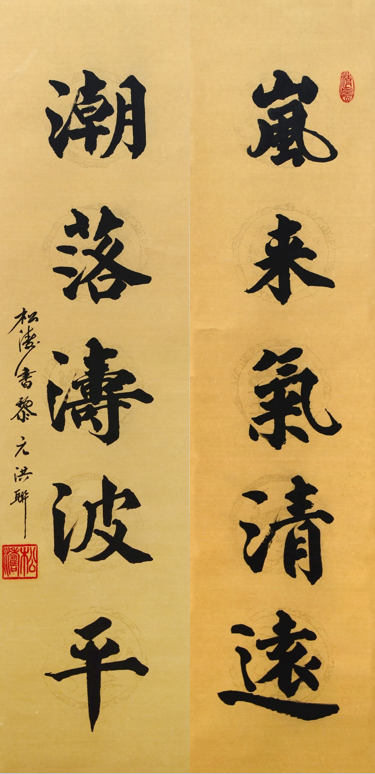 嵐来氣清遠
潮落濤波平
松濤書黎元洪聯
松濤